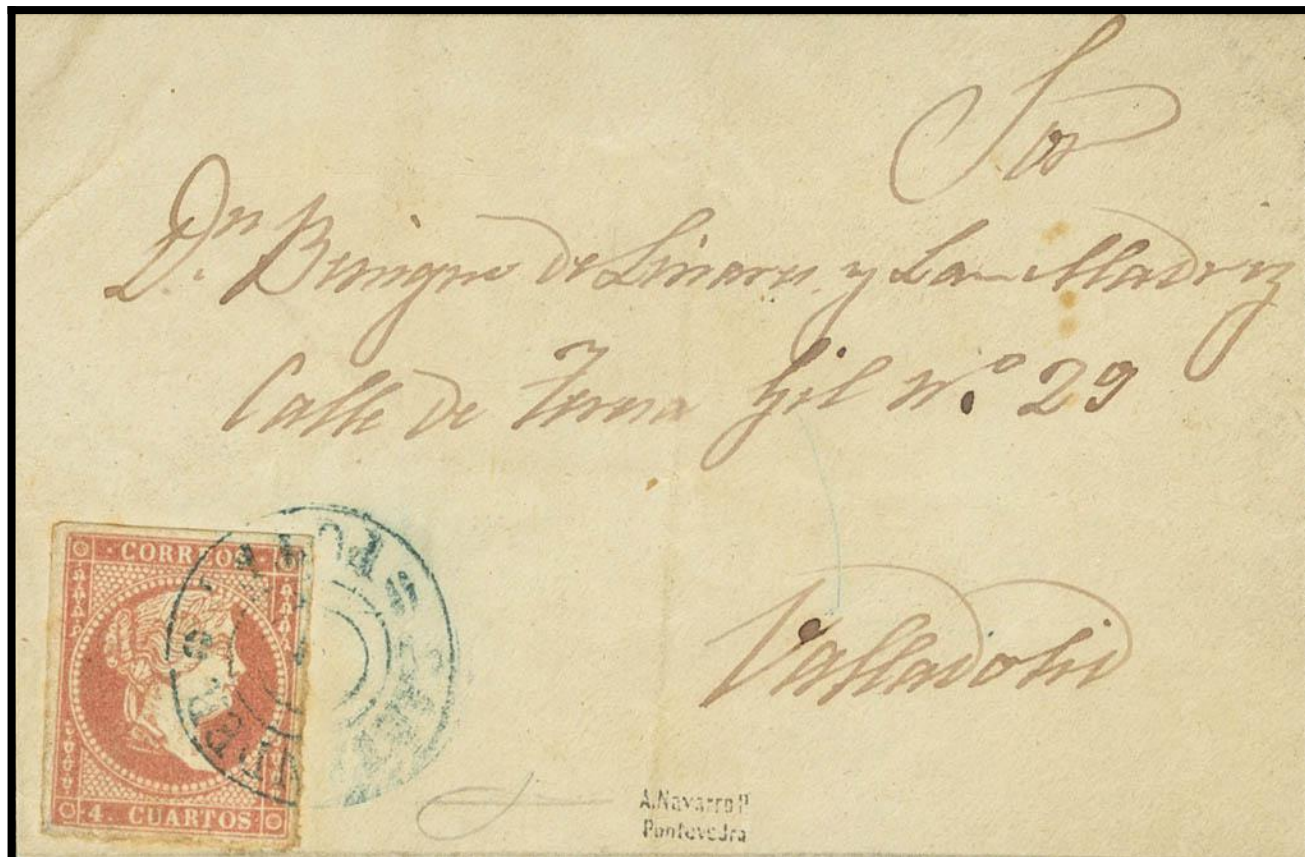 Sor
Dn. Benigno de Linares y La-Madriz
Calle de Teresa Gil No. 29
Valladolid
· CORREOS ·
4. CUARTOS
A.Navarro P.
Pontevedra